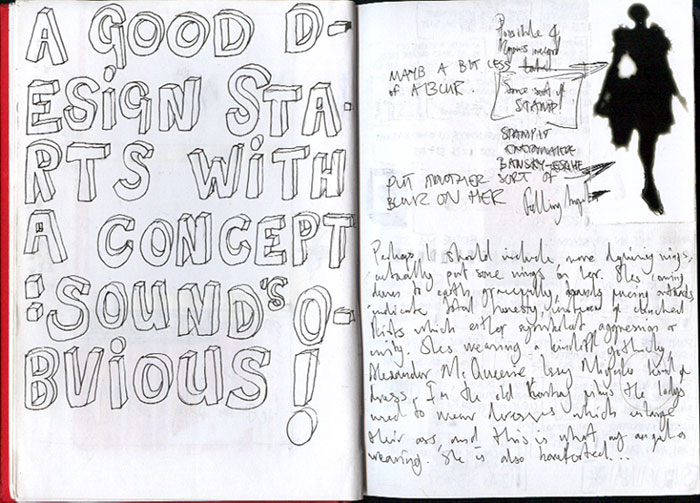 A GOOD D-
ESIGN STA-
RTS WITH
A CONCEPT
: SOUND'S O-
BVIOUS!
Possible 4
MAYB A BIT LESS
OF A BLUR.
some sort of
STAMP!
STAMP IT
BANSKY-ESQUE
PUT ANOTHER SORT OF
BLUR ON HER
Falling Angel
Perhaps, I should include more wings,
actually put some wings on her. She's coming
down to earth, gracefully, facing outwards
indicate total honesty, instead of clenched
fists which either symbolist aggression or
unity. She's wearing a kindoff gothicky,
Alexander McQueene Issey Miyake kind of
dress, In the old plays the ladys
used to wear dresses which enlarge
their ass, and this is what my angel is
wearing. She is also